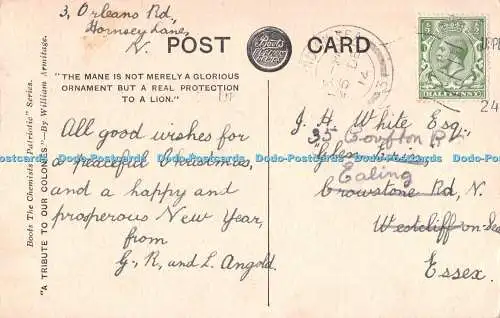 3, Orleans Rd,
Hornsey Lane,
N.
POST CARD
Boots
"THE MANE IS NOT MERELY A GLORIOUS
ORNAMENT BUT A REAL PROTECTION
TO A LION."
All good wishes for
a peaceful Christmas,
and a happy and
prosperous New Year,
from
G, R, and L. Angold.
J. H. White Esq,
35
Rd
Ealing
Crowstone Rd, N.
Westcliff-on-Sea
Essex.
HALFPENNY
24
14
Boots The Chemists' "Patriotic" Series.
"A TRIBUTE TO OUR COLONIES"—By William Armitage.
Dodo-Postcards Dodo-Postcards Dodo-Postcards Dodo-Postcards Dodo-Postcards